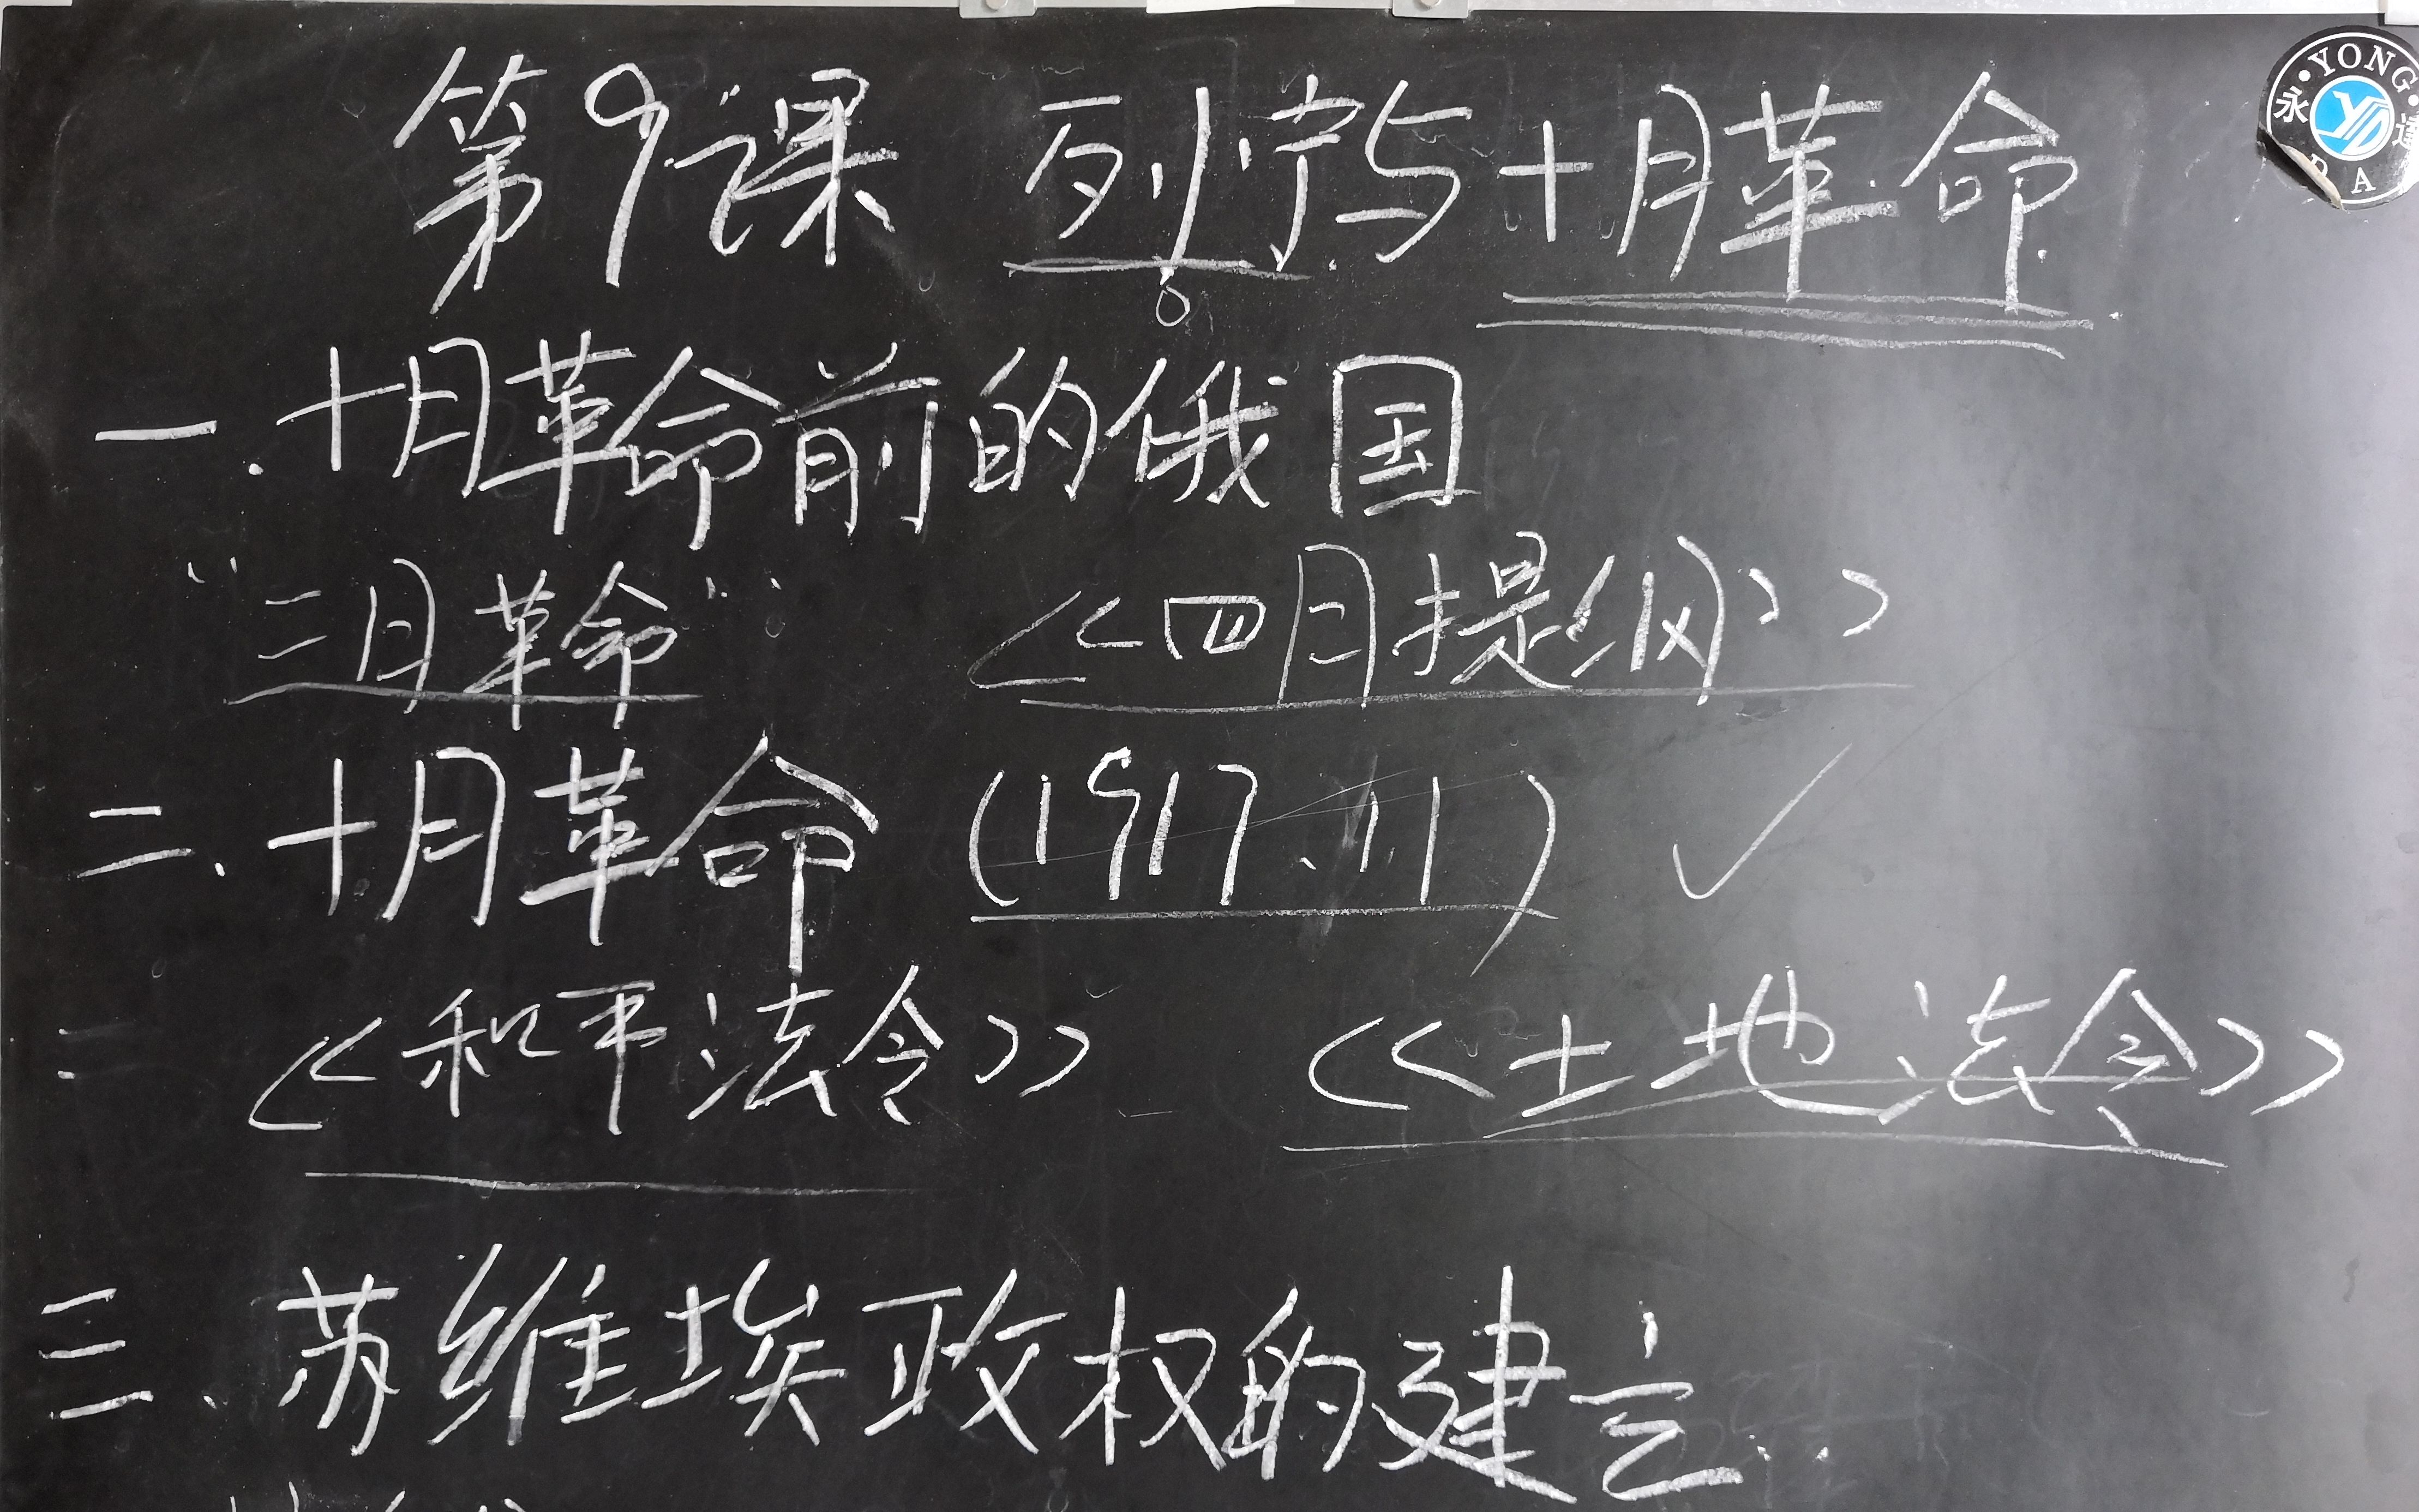 第9课 列宁与十月革命
一.十月革命前的俄国
“三月革命” <<四月提纲>>
二.十月革命 (1917.11)
<<和平法令>> <<土地法令>>
三.苏维埃政权的建立
永 YONG DA